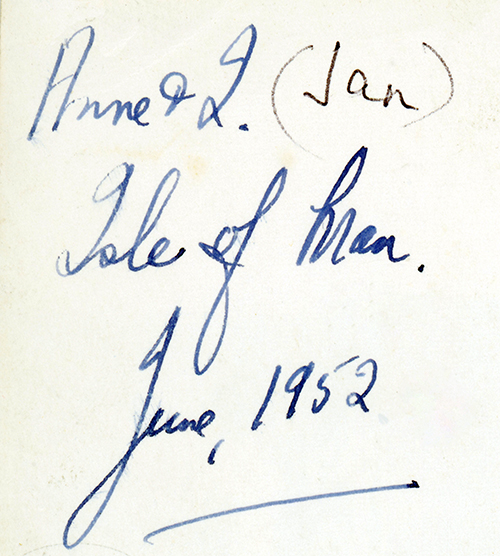 Anne & I. (Jan)
Isle of Man.
June, 1952